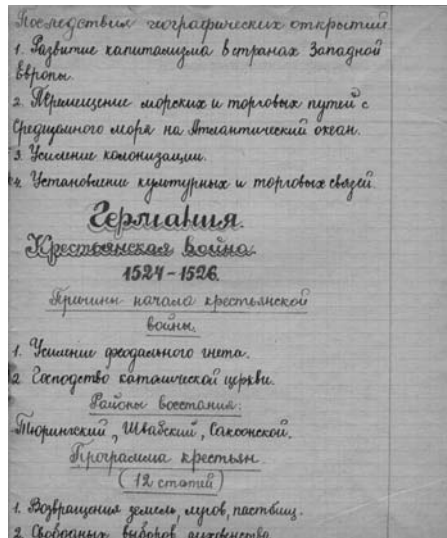 Последствия географических открытий
1. Развитие капитализма в странах Западной
Европы.
2. Перемещение морских и торговых путей с
Средиземного моря на Атлантический океан.
3. Усиление колонизации.
4. Установление культурных и торговых связей.
Германия.
Крестьянская война.
1524-1526.
Причины начала крестьянской
войны.
1. Усиление феодального гнета.
2. Господство католической церкви.
Районы восстания:
Тюрингский, Швабский, Саксонской.
Программа крестьян
(12 статий)
1. Возвращения земель, лугов, пастбищ.
2. Свободных выборов духовенства